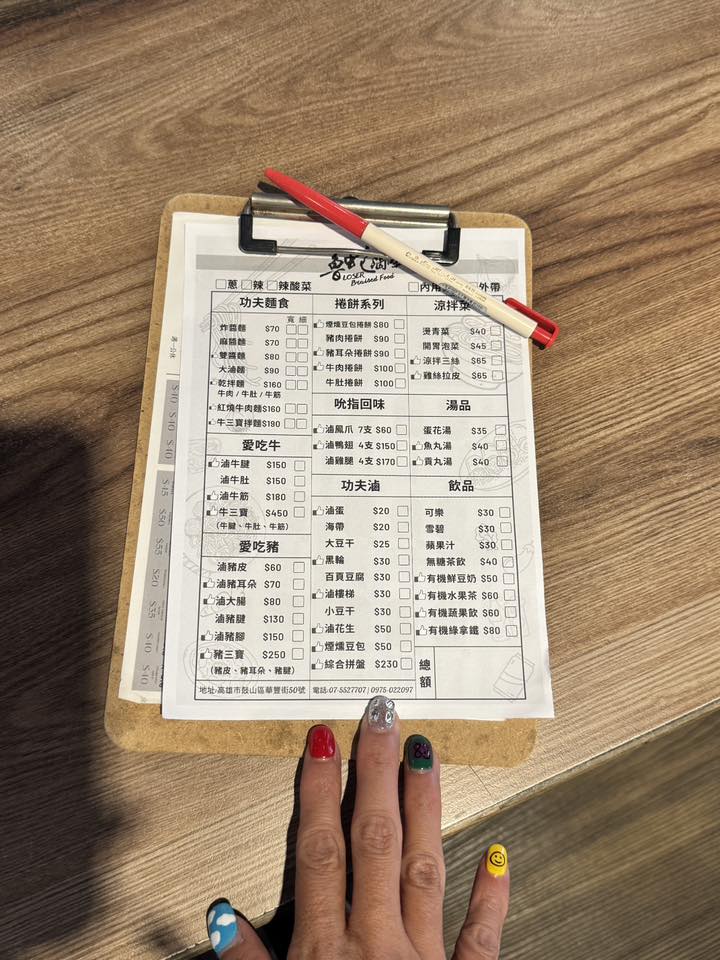 魯蛇滷味
LOSER
Braised Food
蔥 辣 辣酸菜
內用 外帶
功夫麵食
寬 細
炸醬麵 $70
麻醬麵 $70
雙醬麵 $80
大滷麵 $90
乾拌麵 $160
牛肉/牛肚/牛筋
紅燒牛肉麵 $160
牛三寶拌麵 $190
愛吃牛
滷牛腱 $150
滷牛肚 $150
滷牛筋 $180
牛三寶 $450
(牛腱、牛肚、牛筋)
愛吃豬
滷豬皮 $60
滷豬耳朵 $70
滷大腸 $80
滷豬腱 $130
滷豬腳 $150
豬三寶 $250
(豬皮、豬耳朵、豬腱)
捲餅系列
煙燻豆包捲餅 $80
豬肉捲餅 $90
豬耳朵捲餅 $90
牛肉捲餅 $100
牛肚捲餅 $100
吮指回味
滷鳳爪 7支 $60
滷鴨翅 4支 $150
滷雞腿 4支 $170
功夫滷
滷蛋 $20
海帶 $20
大豆干 $25
黑輪 $30
百頁豆腐 $30
滷樓梯 $30
小豆干 $30
滷花生 $50
煙燻豆包 $50
綜合拼盤 $230
涼拌菜
燙青菜 $40
開胃泡菜 $45
涼拌三絲 $65
雞絲拉皮 $65
湯品
蛋花湯 $35
魚丸湯 $40
貢丸湯 $40
飲品
可樂 $30
雪碧 $30
蘋果汁 $30
無糖茶飲 $40
有機鮮豆奶 $50
有機水果茶 $60
有機蔬果飲 $60
有機綠拿鐵 $80
總額
地址:高雄市鼓山區華豐街50號 電話:07-5527707 | 0975-022097
$45
$50
$55
$20
$35
$40
$40